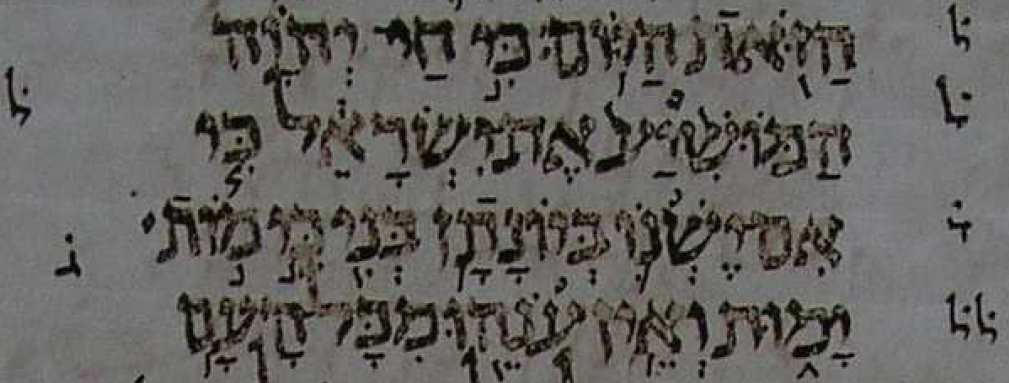 ל̇ הַזֹּאת הַיּוֹם׃ כִּי חַי־יְהוָה
ל̇ הַמּוֹשִׁיעַ אֶת־יִשְׂרָאֵל כִּי ל̇
ד̇ אִם־יֶשְׁנוֹ בְּיוֹנָתָן בְּנִי כִּי מוֹת ג̇
ל̇ ל̇ יָמוּת וְאֵין עֹנֵהוּ מִכָּל־הָעָם